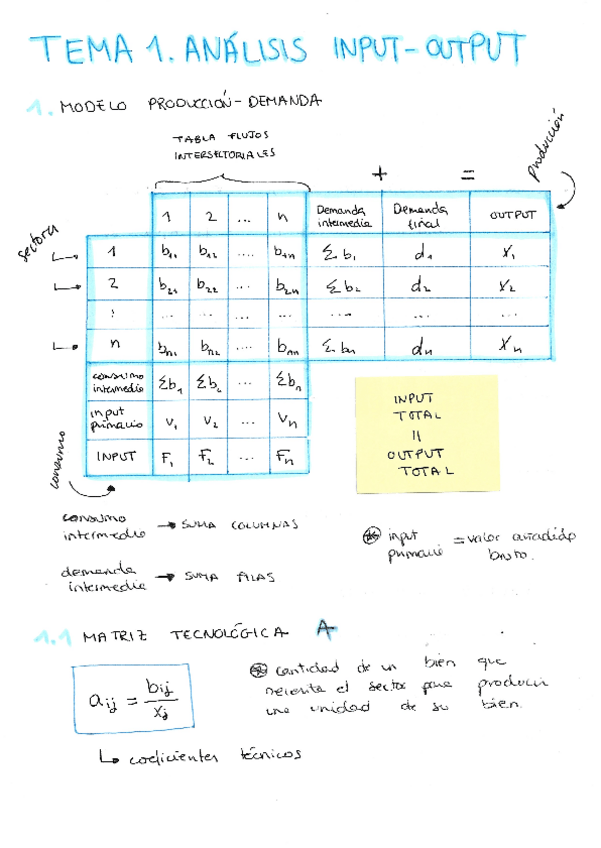 TEMA 1. ANÁLISIS INPUT-OUTPUT
1. MODELO PRODUCCIÓN-DEMANDA
TABLA FLUJOS
INTERSECTORIALES
+ = Producción
Sectores
1 2 ... n Demanda intermedia Demanda final OUTPUT
1 b₁₁ b₁₂ .... b₁n Σb₁ d₁ X₁
2 b₂₁ b₂₂ .... b₂n Σb₂ d₂ X₂
⋮ ... ... ... ... ... ... ...
n bn₁ bn₂ .... bnn Σbn dn Xn
consumo intermedio Σb₁ Σb₂ ... Σbn
input primario V₁ V₂ ... Vn
INPUT F₁ F₂ ... Fn
consumo
INPUT
TOTAL
=
OUTPUT
TOTAL
consumo intermedio → SUMA COLUMNAS
demanda intermedia → SUMA FILAS
* input primario = valor añadido bruto.
1.1 MATRIZ TECNOLÓGICA A
aij = bij / xj
* cantidad de un bien que
necesita el sector para producir
una unidad de su bien.
↳ coeficientes técnicos